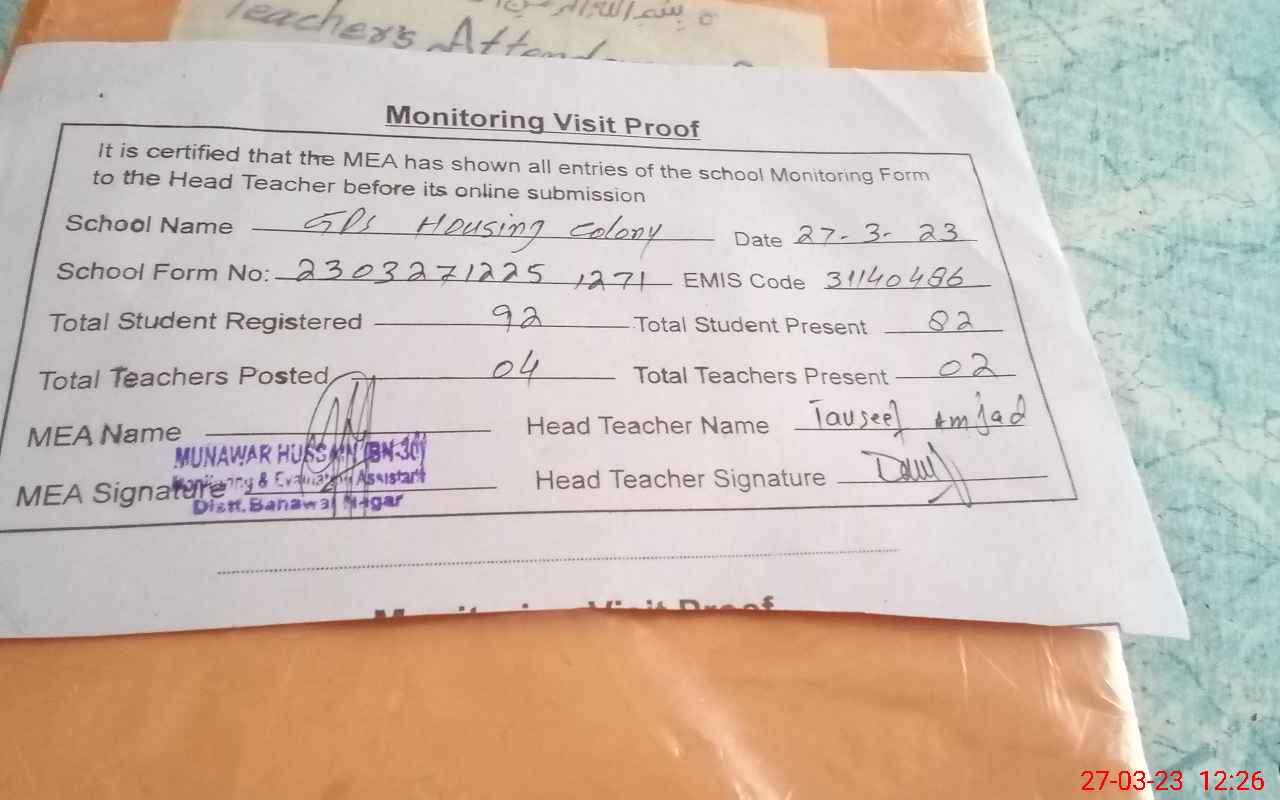 Teacher's Attend
Monitoring Visit Proof
It is certified that the MEA has shown all entries of the school Monitoring Form
to the Head Teacher before its online submission
School Name GPS Housing Colony Date 27-3-23
School Form No: 2303271225 1271 EMIS Code 31140486
Total Student Registered 92 Total Student Present 82
Total Teachers Posted 04 Total Teachers Present 02
MEA Name Head Teacher Name Tauseef Amjad
MUNAWAR HUSSAIN (BN-30)
MEA Signature Head Teacher Signature
Monitoring & Evaluation Assistant
Distt. Bahawal Nagar
Monitoring Visit Proof
27-03-23 12:26